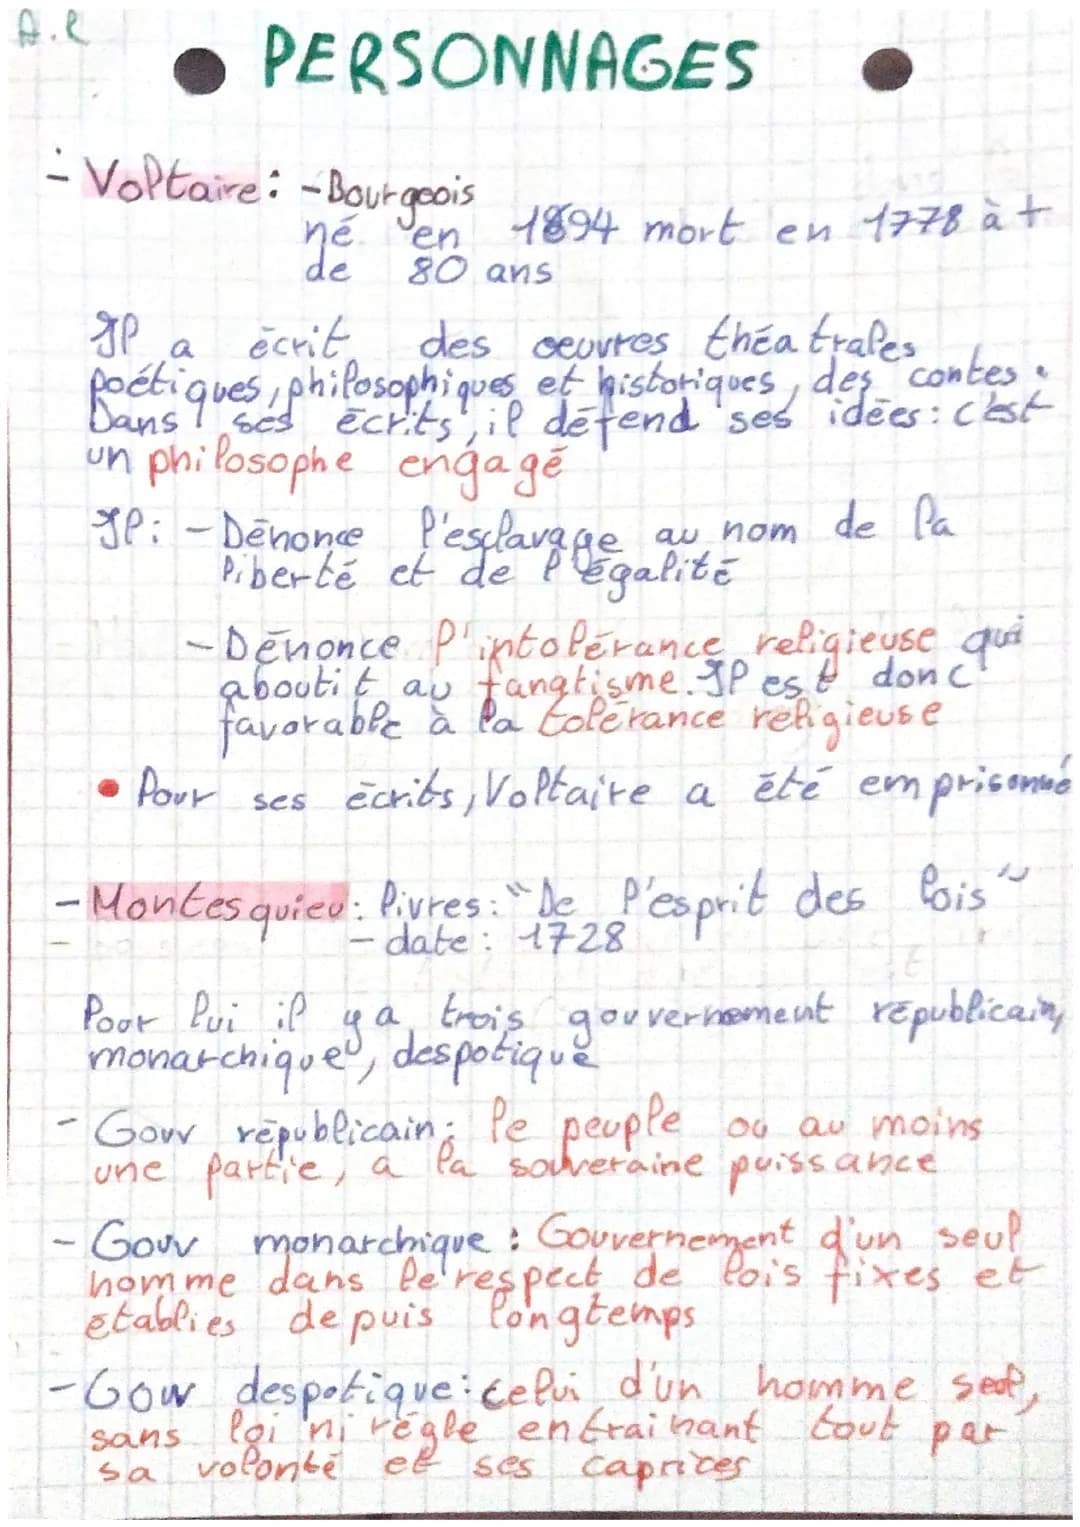 A.R
● PERSONNAGES ●
- Voltaire: - Bourgeois
né en 1894 mort en 1778 à +
de 80 ans
Il a écrit des oeuvres théatrales
poétiques, philosophiques et historiques, des contes.
Dans ses écrits, il défend ses idées: c'est
un philosophe engagé
Il: - Dénonce l'esclavage au nom de la
liberté et de l'égalité
- Dénonce l'intolérance religieuse qui
aboutit au fanatisme. Il est donc
favorable à la tolérance religieuse
• Pour ses écrits, Voltaire a été emprisonné
- Montesquieu: livres: "De l'esprit des lois"
- date: 1728
Pour lui il y a trois gouvernement républicain,
monarchique, despotique
- Gouv républicain: le peuple ou au moins
une partie, a la souveraine puissance
- Gouv monarchique: Gouvernement d'un seul
homme dans le respect de lois fixes et
établies depuis longtemps
- Gouv despotique: celui d'un homme seul,
sans loi ni règle entrainant tout par
sa volonté et ses caprices